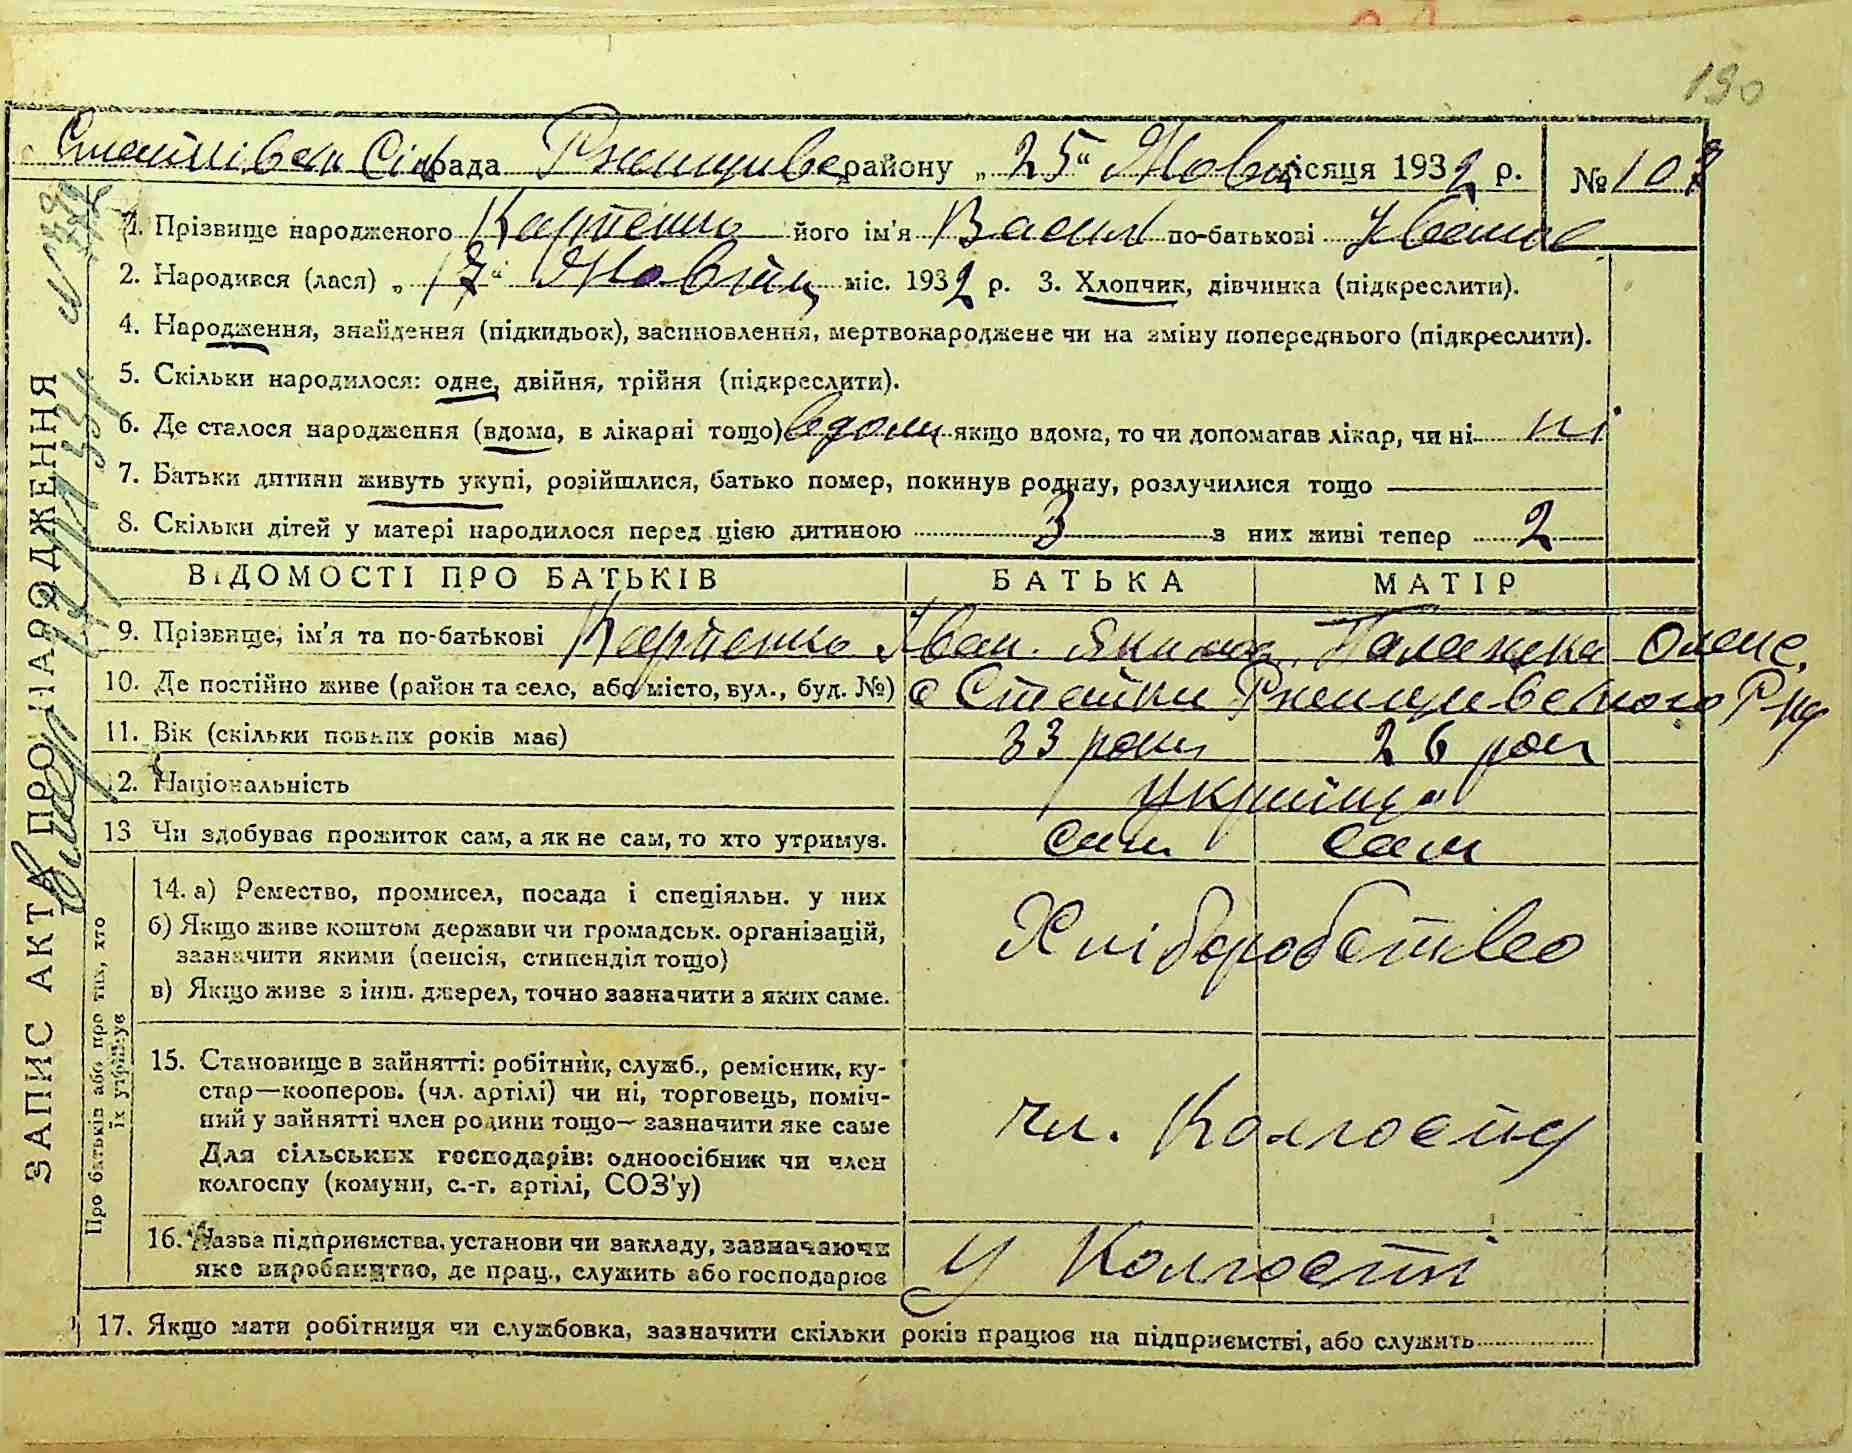 190
Стайківська Сільрада Ржищівс району „25“ Жовт місяця 1932 р. № 107
1. Прізвище народженого Карпенко його ім'я Васил по-батькові Іванов
2. Народився (лася) „17“ Жовтн міс. 1932 р. 3. Хлопчик, дівчинка (підкреслити).
4. Народження, знайдення (підкидьок), засиновлення, мертвонароджене чи на зміну попереднього (підкреслити).
5. Скільки народилося: одне, двійня, трійня (підкреслити).
6. Де сталося народження (вдома, в лікарні тощо) вдома якщо вдома, то чи допомагав лікар, чи ні ні
7. Батьки дитини живуть укупі, розійшлися, батько помер, покинув родину, розлучилися тощо
8. Скільки дітей у матері народилося перед цією дитиною 3 з них живі тепер 2
ВІДОМОСТІ ПРО БАТЬКІВ БАТЬКА МАТІР
9. Прізвище, ім'я та по-батькові Карпенко Іван. Якимов. Палажка Олекс.
10. Де постійно живе (район та село, або місто, вул., буд. №) с Стайки Ржищівського Р-ну
11. Вік (скільки повних років має) 33 роки 26 рок
12. Національність Українц
13 Чи здобуває прожиток сам, а як не сам, то хто утримує. сам сам
14. а) Ремество, промисел, посада і спеціяльн. у них
б) Якщо живе коштом держави чи громадськ. організацій,
зазначити якими (пенсія, стипендія тощо)
в) Якщо живе з інш. джерел, точно зазначити з яких саме.
Хліборобство
15. Становище в зайнятті: робітник, служб., ремісник, ку-
стар—коопеpов. (чл. артілі) чи ні, торговець, поміч-
ний у зайнятті член родини тощо— зазначити яке саме
Для сільських господарів: одноосібник чи член
колгоспу (комуни, с.-г. артілі, СОЗ'у)
чл. Колгоспу
16. Назва підприємства, установи чи закладу, зазначаючи
яке виробництво, де прац., служить або господарює
у Колгоспі
17. Якщо мати робітниця чи службовка, зазначити скільки років працює на підприємстві, або служить
ЗАПИС АКТА ПРО НАРОДЖЕННЯ
Про батьків або про тих, хто
їх утримує